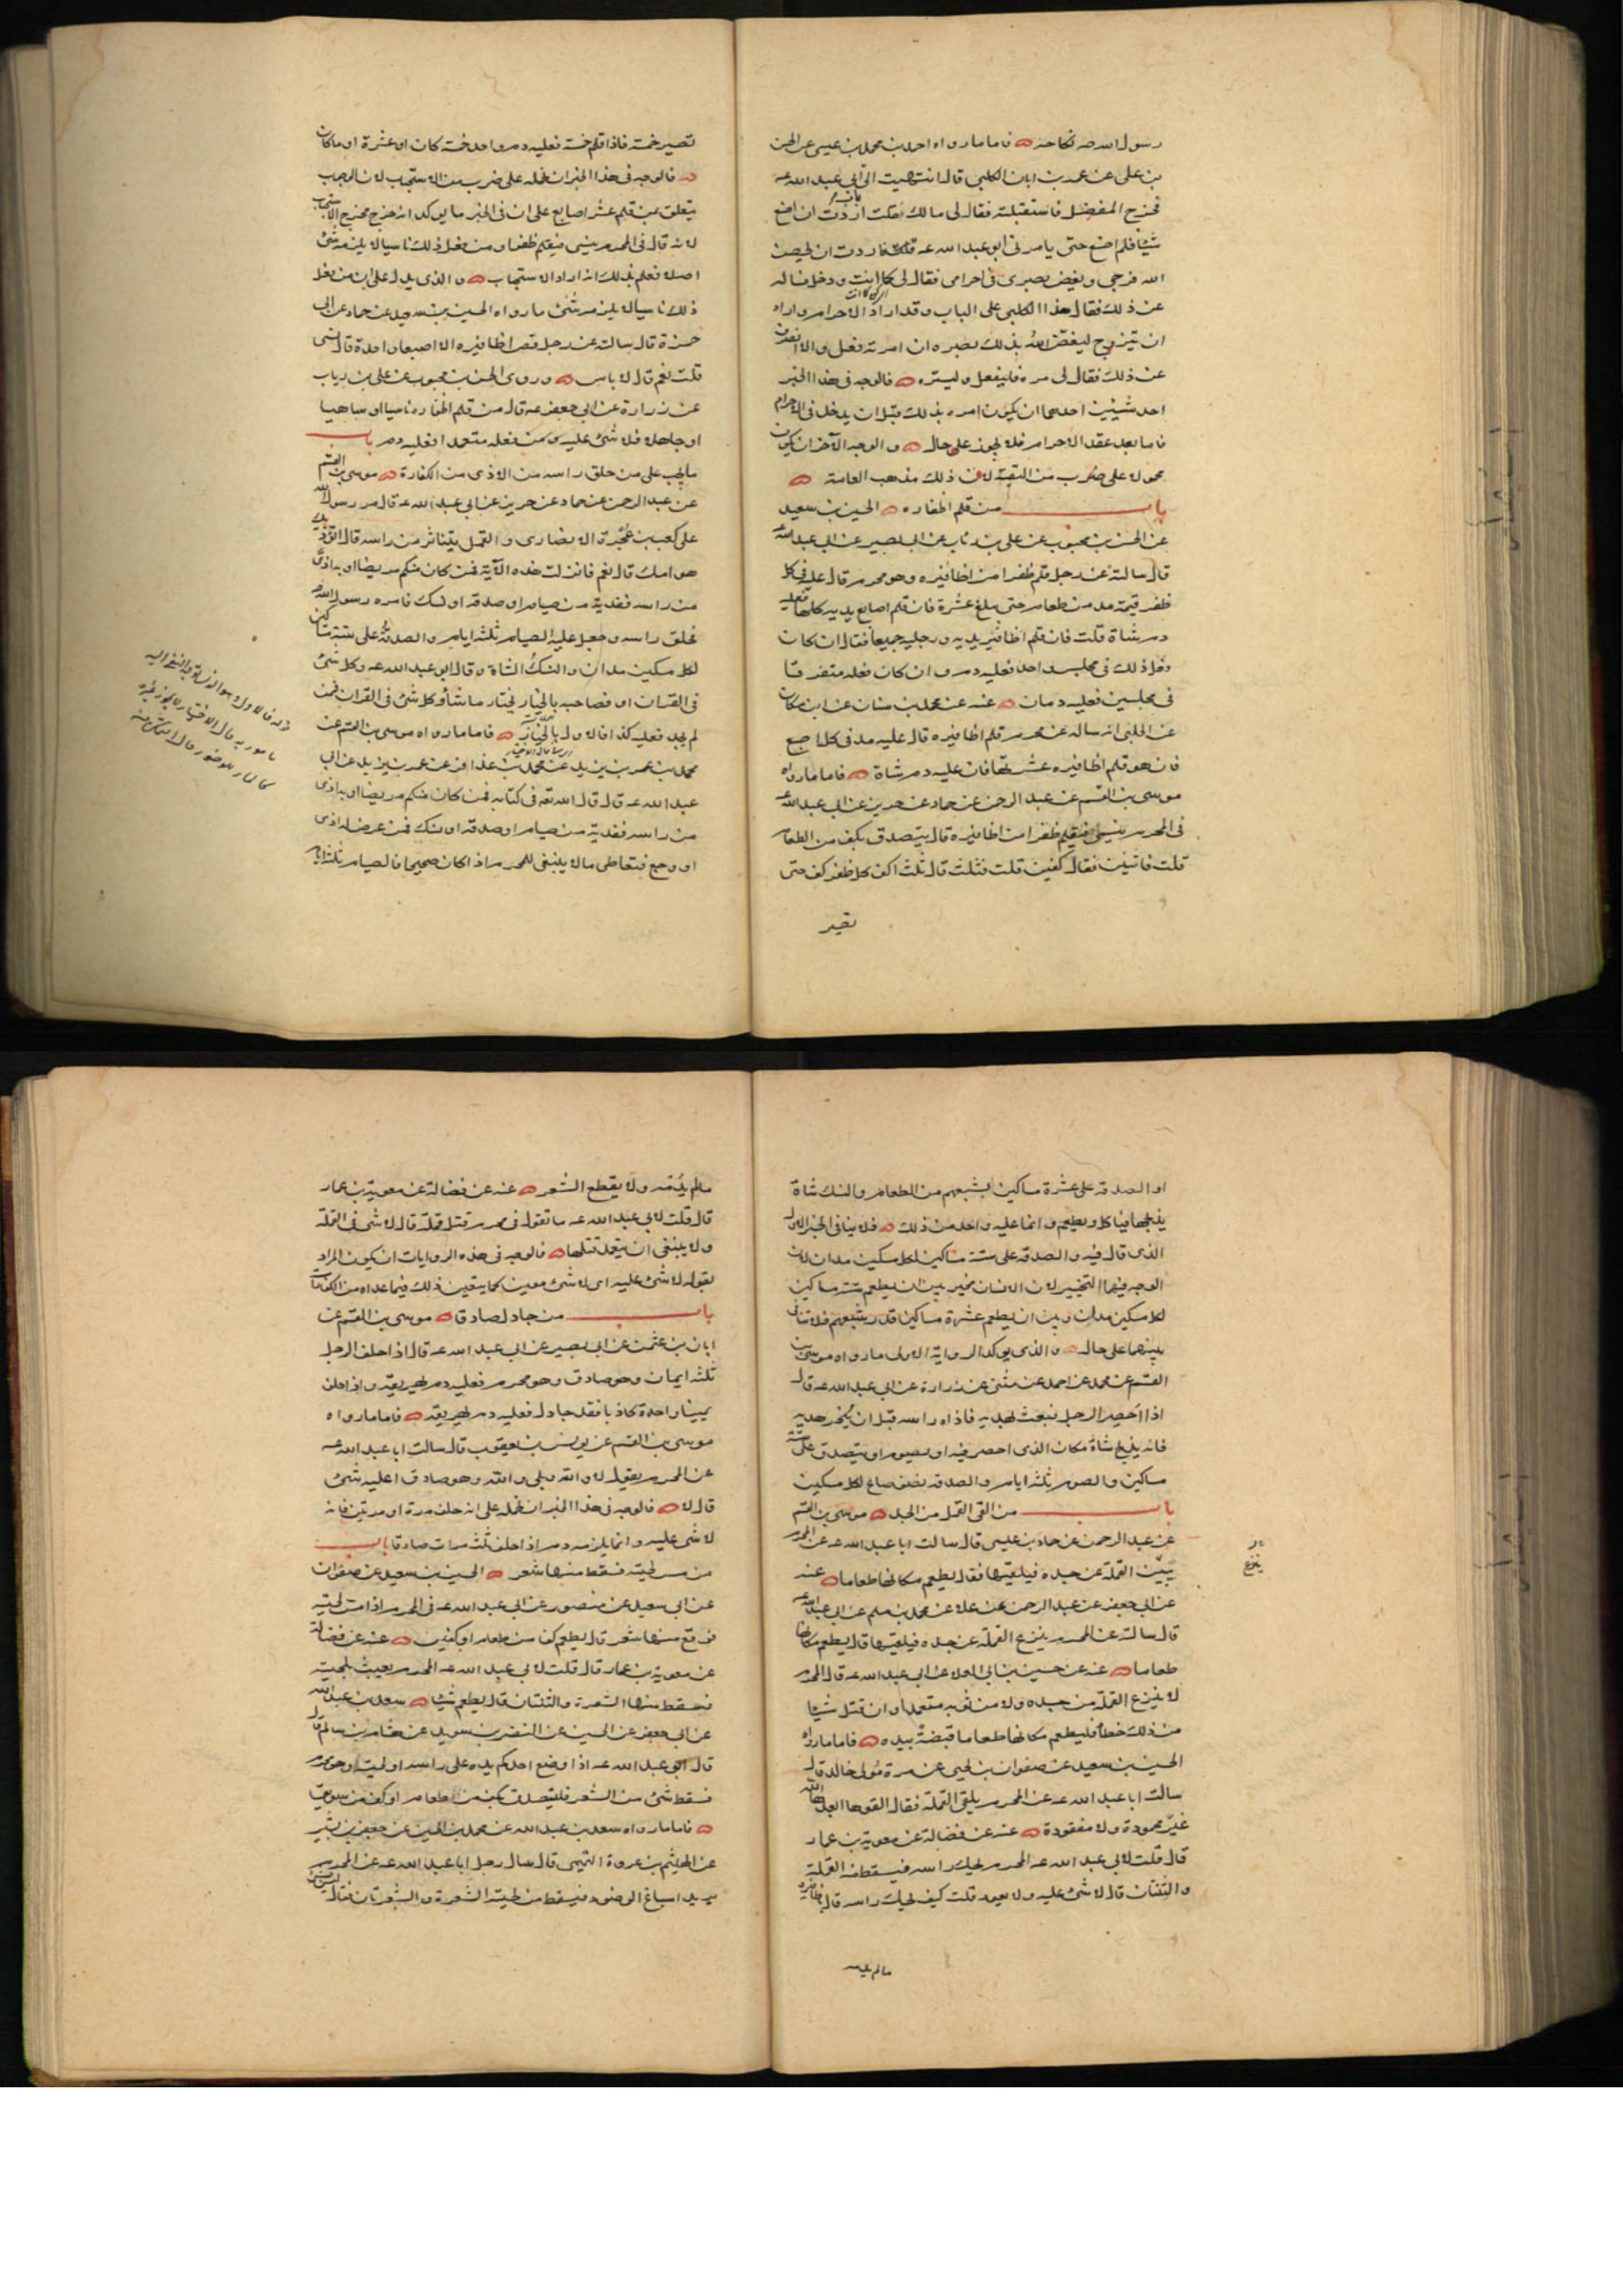 رسول الله صه نكاحه فاما ما رواه احمد بن محمد بن عيسى عن الحسن
بن على عن عمر بن ابان الكلبى قال انتهيت الى ابى عبد الله عه
فخرج المفضل فاستقبلته فقال لى مالك فقلت اردت ان اصنع
شيئا فلم اصنع حتى يامرنى ابو عبد الله عه فاردت ان يحصن
الله فرجى ويغض بصرى فى احرامى فقال لى كما انت ودخل فساله
عن ذلك فقال هذا الكلبى على الباب وقد اراد الاحرام واراد
ان يتزوج ليغض الله بذلك بصره ان امرته فعل والا انصرف
عن ذلك فقال لى مره فليفعل وليستره فالوجه فى هذا الخبر
احد شيئين احدهما ان يكون امره بذلك قبل ان يدخل فى الاحرام
فاما بعد عقد الاحرام فلا يجوز على حال والوجه الآخر ان يكون
محمولا على ضرب من التقية لان ذلك مذهب العامة
باب من قلم اظفاره الحسين بن سعيد
عن الحسن بن محبوب عن على بن رئاب عن ابى بصير عن ابى عبد الله عه
قال سالته عن رجل قلم ظفرا من اظافيره وهو محرم قال عليه فى كل
ظفر قيمة مد من طعام حتى يبلغ عشرة فان قلم اصابع يديه كلها فعليه
دم شاة قلت فان قلم اظافير يديه ورجليه جميعا فقال ان كان
فعل ذلك فى مجلس واحد فعليه دم وان كان فعله متفرقا
فى مجلسين فعليه دمان عنه عن محمد بن سنان عن ابن مسكان
عن الحلبى انه ساله عن محرم قلم اظافيره قال عليه مد فى كل اصبع
فان هو قلم اظافيره عشرتها فان عليه دم شاة فاما ما رواه
موسى بن القسم عن عبد الرحمن عن حماد عن حريز عن ابى عبد الله عه
فى المحرم ينسى فيقلم ظفرا من اظافيره قال يتصدق بكف من الطعام
قلت فاثنين فقال كفين قلت فثلث قال ثلث اكف كل ظفر كف حتى
تصير
تصير خمسة فاذا قلم خمسة فعليه دم واحد خمسة كان او عشرة او ما كان
فالوجه فى هذا الخبر ان نحمله على ضرب من الاستحباب لان الوجوب
يتعلق بمن قلم عشر اصابع على ان فى الخبر ما يوكد انه خرج مخرج الاستحباب
لانه قال فى المحرم ينسى فيقلم ظفرا ومن فعل ذلك ناسيا لا يلزمه شئ
اصلا فعلم بذلك انه اراد الاستحباب والذى يدل على ان من فعل
ذلك ناسيا لا يلزمه شئ ما رواه الحسين بن سعيد عن حماد عن ابى
حمزة قال سالته عن رجل قص اظافيره الا اصبعا واحدة قال نسى
قلت نعم قال لا باس وروى الحسن بن محبوب عن على بن رياب
عن زرارة عن ابى جعفر عه قال من قلم اظفاره ناسيا او ساهيا
او جاهلا فلا شئ عليه ومن فعله متعمدا فعليه دم باب
ما يجب على من حلق راسه من الاذى من الكفارة موسى بن القسم
عن عبد الرحمن عن حماد عن حريز عن ابى عبد الله عه قال مر رسول الله
على كعب بن عجرة الانصارى والقمل يتناثر من راسه قال اتؤذيك
هوامك قال نعم فانزلت هذه الآية فمن كان منكم مريضا او به اذى
من راسه ففدية من صيام او صدقة او نسك فامره رسول الله صه
فحلق راسه وجعل عليه الصيام ثلثة ايام والصدقة على ستة مساكين
لكل مسكين مدان والنسك الشاة وقال ابو عبد الله عه وكل شئ
فى القرآن او فصاحبه بالخيار يختار ما شاء وكل شئ فى القران فمن
لم يجد فعليه كذا فالاول بالخيار فاما ما رواه موسى بن القسم عن
محمد بن عمر بن يزيد عن محمد بن عذافر عن عمر بن يزيد عن ابى
عبد الله عه قال قال الله تعه فى كتابه فمن كان منكم مريضا او به اذى
من راسه ففدية من صيام او صدقة او نسك فمن عرض له اذى
او وجع فتعاطى ما لا ينبغى للمحرم اذا كان صحيحا فالصيام ثلثة ايام
او الصدقة على عشرة مساكين يشبعهم من الطعام والنسك شاة
يذبحها فياكل ويطعم وانما عليه واحد من ذلك فلا ينافى الخبر الاول
الذى قال فيه والصدقة على ستة مساكين لكل مسكين مدان لان
الوجه فيهما التخيير لان الانسان مخير بين ان يطعم ستة مساكين
لكل مسكين مدان وبين ان يطعم عشرة مساكين قدر شبعهم فلا تنافى
بينهما على حال والذى يوكد الرواية الاولى ما رواه موسى بن
القسم عن محمد عن احمد عن مثنى عن زرارة عن ابى عبد الله عه قال
اذا احصر الرجل فبعث بهديه فاذاه راسه قبل ان ينحر هديه
فانه يذبح شاة مكان الذى احصر فيه او يصوم او يتصدق على ستة
مساكين والصوم ثلثة ايام والصدقة نصف صاع لكل مسكين
باب من القى القمل من الجسد موسى بن القسم
عن عبد الرحمن عن حماد بن عيسى قال سالت ابا عبد الله عه عن المحرم
يبين القملة عن جسده فيلقيها فقال يطعم مكانها طعاما عنه
ينزع
عن ابى جعفر عن عبد الرحمن عن علا عن محمد بن مسلم عن ابى عبد الله عه
قال سالته عن المحرم ينزع القملة عن جسده فيلقيها قال يطعم مكانها
طعاما عنه عن حسين بن ابى العلا عن ابى عبد الله عه قال المحرم
لا ينزع القملة من جسده ولا من ثوبه متعمدا وان قتل شيئا
من ذلك خطأ فليطعم مكانها طعاما قبضة بيده فاما ما رواه
الحسين بن سعيد عن صفوان بن يحيى عن مرة مولى خالد قال
سالت ابا عبد الله عه عن المحرم يلقى القملة فقال القوها ابعدها الله
غير محمودة ولا مفقودة عنه عن فضالة عن معوية بن عمار
قال قلت لابى عبد الله عه المحرم يحك راسه فيسقط منه القملة
والثنتان قال لا شئ عليه ولا يعود قلت كيف يحك راسه قال باظافيره
ما لم يدم
ما لم يدم ولا يقطع الشعر عنه عن فضالة عن معوية بن عمار
قال قلت لابى عبد الله عه ما تقول فى محرم قتل قملة قال لا شئ فى القملة
ولا ينبغى ان يتعمد قتلها فالوجه فى هذه الروايات ان يكون المراد
بقوله لا شئ عليه اى لا شئ معين كما يتعين ذلك فيما عداه من الكفارات
باب من جادل صادقا موسى بن القسم عن
ابان بن عثمن عن ابى بصير عن ابى عبد الله عه قال اذا حلف الرجل
ثلثة ايمان وهو صادق وهو محرم فعليه دم يهريقه واذا حلف
يمينا واحدة كاذبا فقد جادل فعليه دم يهريقه فاما ما رواه
موسى بن القسم عن يونس بن يعقوب قال سالت ابا عبد الله عه
عن المحرم يقول لا والله وبلى والله وهو صادق اعليه شئ
قال لا فالوجه فى هذا الخبر ان نحمله على انه حلف مرة او مرتين فانه
لا شئ عليه وانما يلزمه دم اذا حلف ثلث مرات صادقا باب
من مس لحيته فسقط منها شعر الحسين بن سعيد عن صفوان
عن ابى سعيد عن منصور عن ابى عبد الله عه فى المحرم اذا مس لحيته
فوقع منها شعر قال يطعم كفا من طعام او كفين عنه عن فضالة
عن معوية بن عمار قال قلت لابى عبد الله عه المحرم يعبث بلحيته
فسقط منها الشعرة والثنتان قال يطعم شيئا سعد بن عبد الله
عن ابى جعفر عن الحسين عن النضر بن سويد عن هشام بن سالم قال
قال ابو عبد الله عه اذا وضع احدكم يده على راسه او لحيته وهو محرم
فسقط شئ من الشعر فليتصدق بكف من طعام او كف من سويق
فاما ما رواه سعد بن عبد الله عن محمد بن الحسين عن جعفر بن بشير
عن الهيثم بن عروة التميمى قال سال رجل ابا عبد الله عه عن المحرم
يريد اسباغ الوضوء فيسقط من لحيته الشعرة والشعرتان فقال